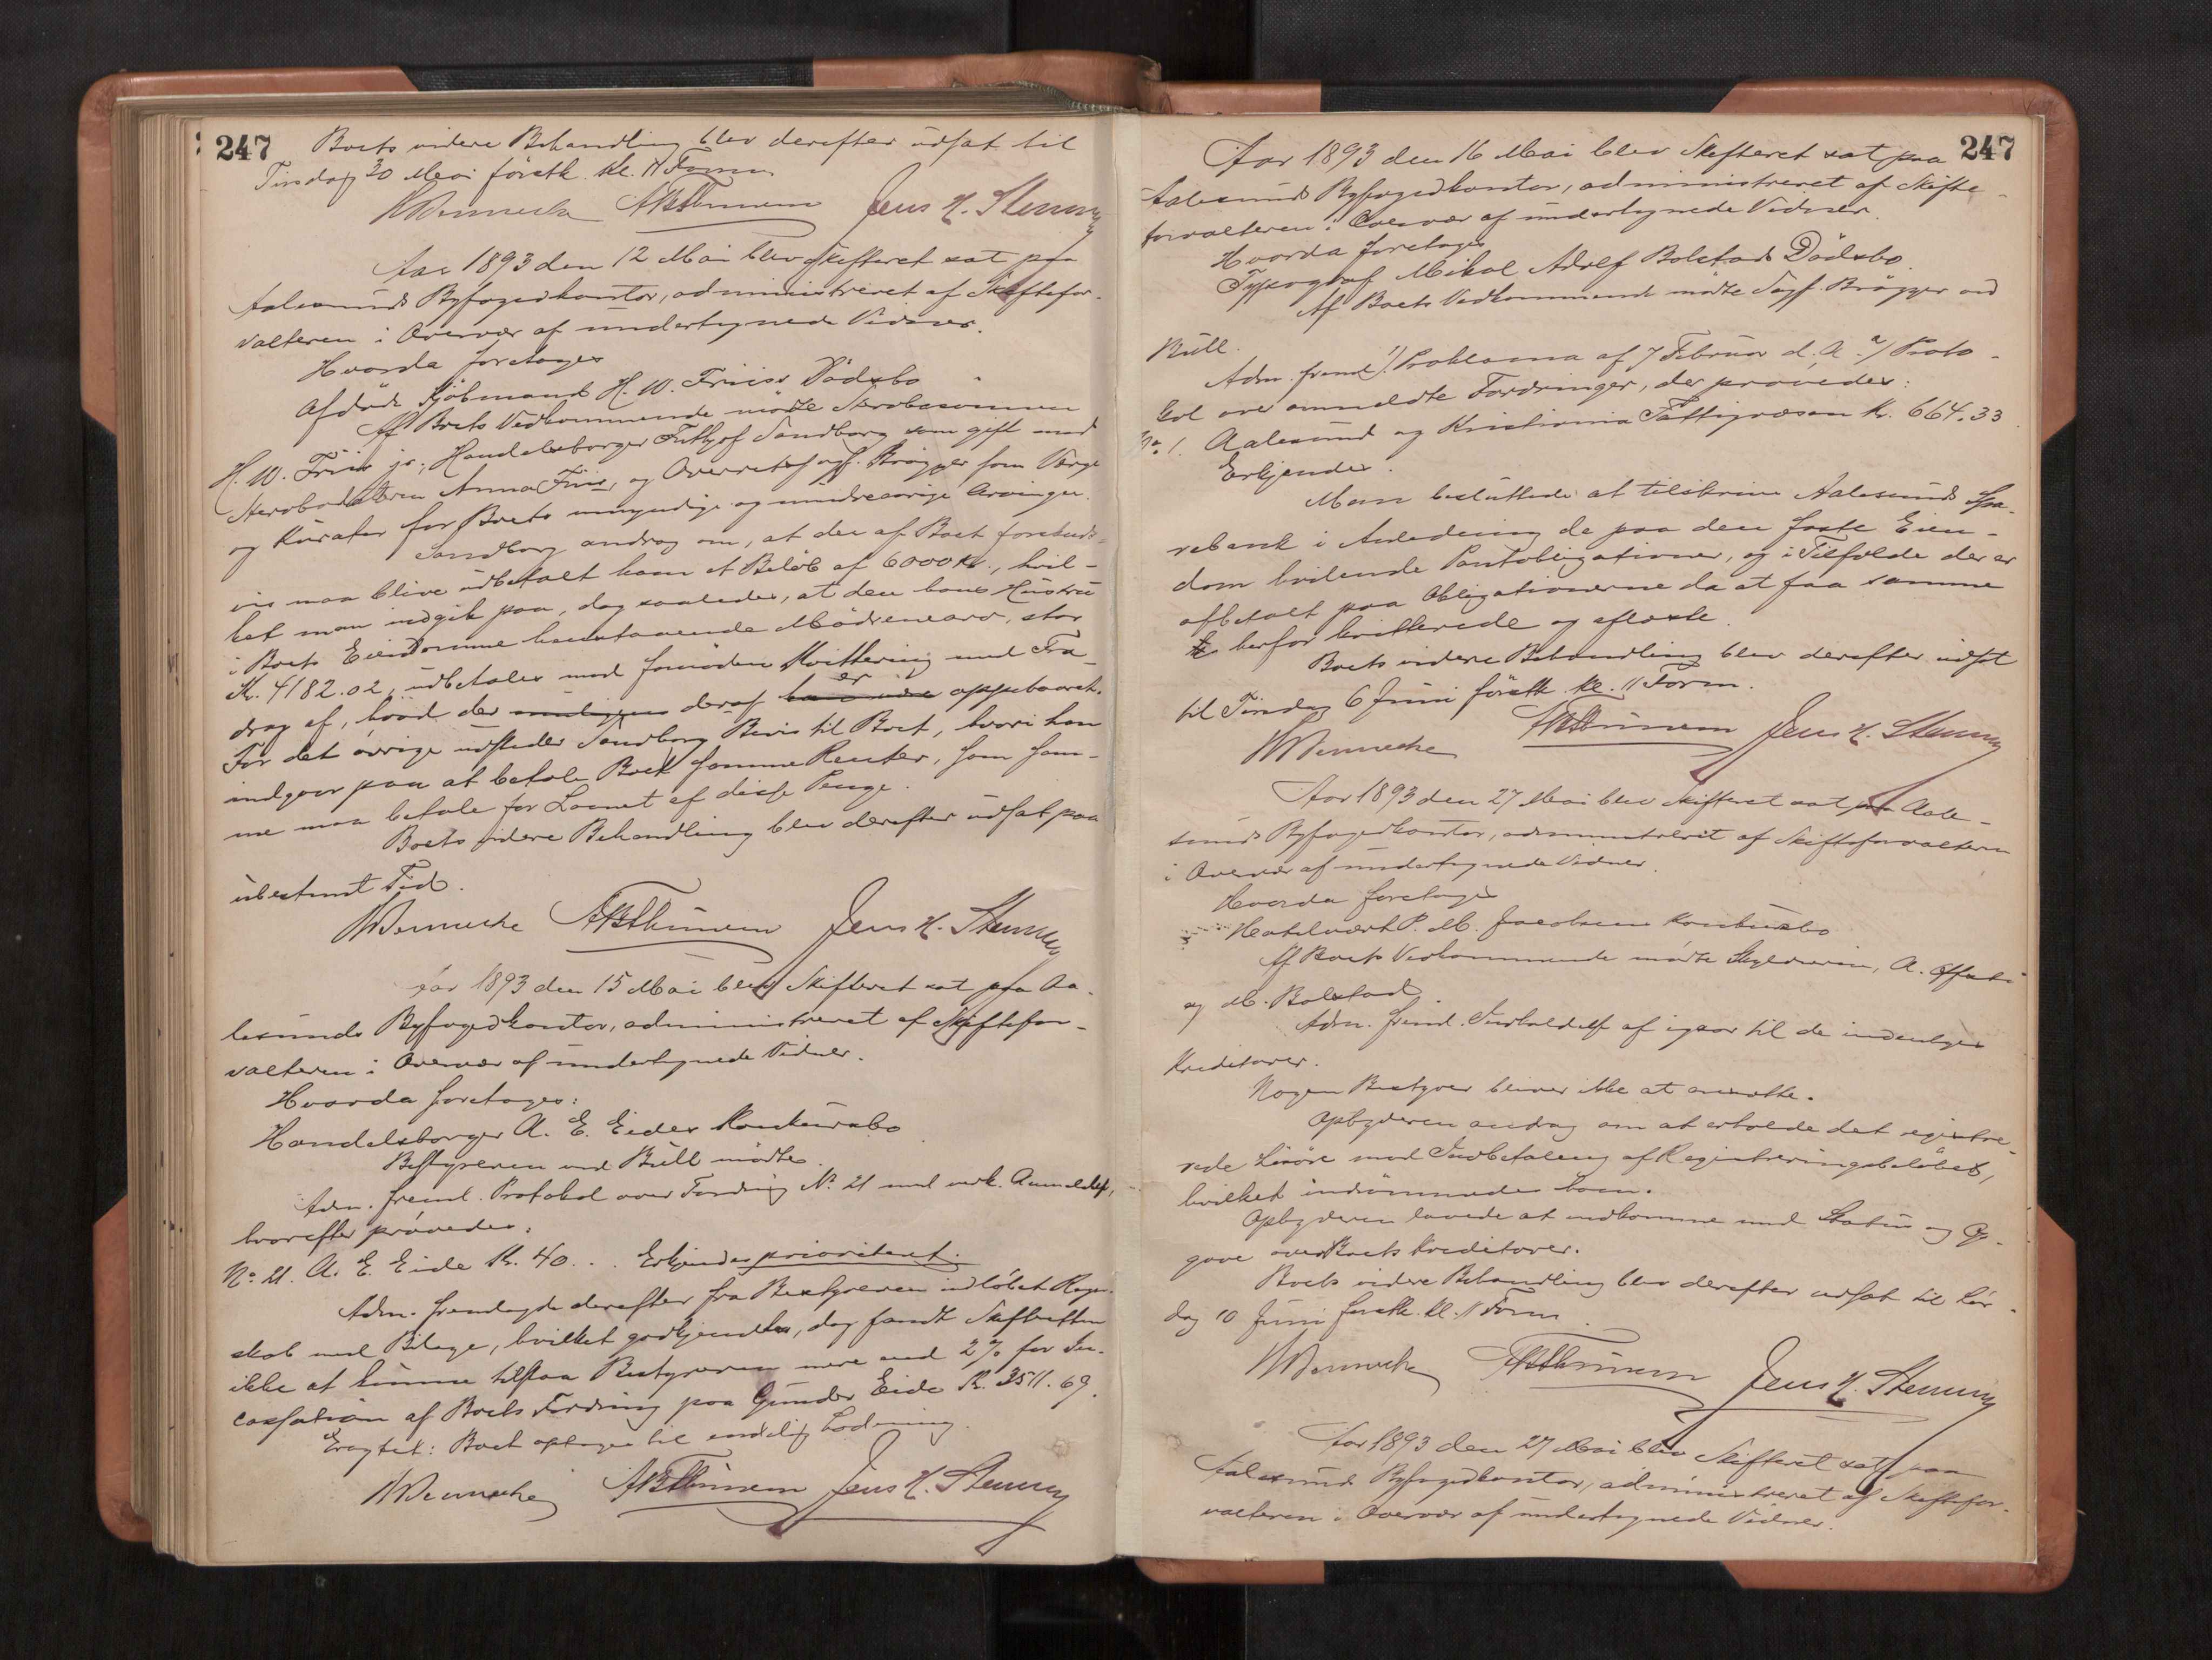 247
Boets videre Behandling blev derefter udsat til
Tirsdag 30 Mai förstk. Kl. 11 Form.
Jens H. Stenum
Aar 1893 den 12 Mai blev Skifteret sat paa
Aalesunds Byfogedkontor, administreret af Skiftefor-
valteren i Overvær af undertegnede Vidner.
Hvorda foretoges
Afdöde Kjöbmand H. W. Friis's Dödsbo
Af Boets Vedkommende mödte Stervbosönnen
H. W. Friis jr., Handelsborger Fritjof Sandborg som gift med
Stervbodatteren Anna Friis, og Overretssagf. Brögger som Værge
og Kurator for Boets umyndige og mindreaarige Arvinger.
Sandborg androg om, at der af Boet forskuds-
vis maa blive udbetalt ham et Belöb af 6000 Kr., hvil-
ket man indgik paa, dog saaledes, at den hans Hustru
i Boets Eiendomme henstaaende Mödrenearv, stor
Kr. 4182.02, udbetales mod fornöden Kvittering med Fra-
drag af, hvad der deraf er oppebaaret.
For det övrige udsteder Sandborg Bevis til Boet, hvori han
indgaar paa at betale Boet samme Renter, som sam-
me maa betale for Laanet af disse Penge.
Boets videre Behandling blev derefter udsat paa
ubestemt Tid.
Jens H. Stenum
Aar 1893 den 15 Mai blev Skifteret sat paa Aa-
lesunds Byfogedkontor, administreret af Skiftefor-
valteren i Overvær af undertegnede Vidner.
Hvorda foretoges:
Handelsborger A. E. Eides Konkursbo
Bestyreren ved Bull mödte.
Adm. freml. Protokol over Fordring No 21 med vedk. Anmeldelse,
hvorefter prövedes:
No 21. A. E. Eide Kr. 40... Erkjendes prioriteret.
Adm. fremlagde derefter fra Bestyreren indlöbet Regn-
skab med Bilage, hvilket godkjendtes, dog fandt Skifteretten
ikke at kunne tilstaa Bestyreren mere end 2% for In-
cassation af Boets Fordring paa Gunder Eide Kr. 3511.69.
Eragtet: Boet optages til endelig Lodning.
Jens H. Stenum
247
Aar 1893 den 16 Mai blev Skifteret sat paa
Aalesunds Byfogedkontor, administreret af Skifte-
forvalteren i Overvær af undertegnede Vidner.
Hvorda foretoges
Typograf Mikal Adolf Bolstads Dödsbo.
Af Boets Vedkommende mödte Sagf. Brögger ved
Bull.
Adm. freml. 1) Proklama af 7 Februar d. A. 2) Proto-
kol over anmeldte Fordringer, der prövedes:
No. 1. Aalesund og Kristiania Fattigvæsen Kr. 664.33.
Erkjendes.
Man besluttede at tilskrive Aalesunds Spa-
rebank i Anledning de paa den faste Eien-
dom hvilende Pantobligationer, og i Tilfælde der er
afbetalt paa Obligationerne da at faa samme
herfor kvitterede og aflæste.
Boets videre Behandling blev derefter udsat
til Tirsdag 6 Juni förstk. kl. 11 Form.
Jens H. Stenum
Aar 1893 den 27 Mai blev Skifteret sat paa Aale-
sunds Byfogedkontor, administreret af Skifteforvalteren
i Overvær af undertegnede Vidner.
Hvorda foretoges
Hotelvært P. M. Jacobsens Konkursbo
Af Boets Vedkommende mödte Skyldneren, A.
og M. Bolstad.
Adm. freml. Indkaldelse af igaar til de indenbyes
Kreditorer.
Nogen Bestyrer bliver ikke at ansætte.
Opbyderen androg om at erholde det registre-
rede Lösöre mod Indbetaling af Registreringsbelöbet,
hvilket indrömmedes ham.
Opbyderen lovede at indkomme med Status og Op-
gave over Boets Kreditorer.
Boets videre Behandling blev derefter udsat til Lör-
dag 10 Juni förstk. kl. 11 Form.
Jens H. Stenum
Aar 1893 den 27 Mai blev Skifteret sat paa
Aalesunds Byfogedkontor, administreret af Skiftefor-
valteren i Overvær af undertegnede Vidner.